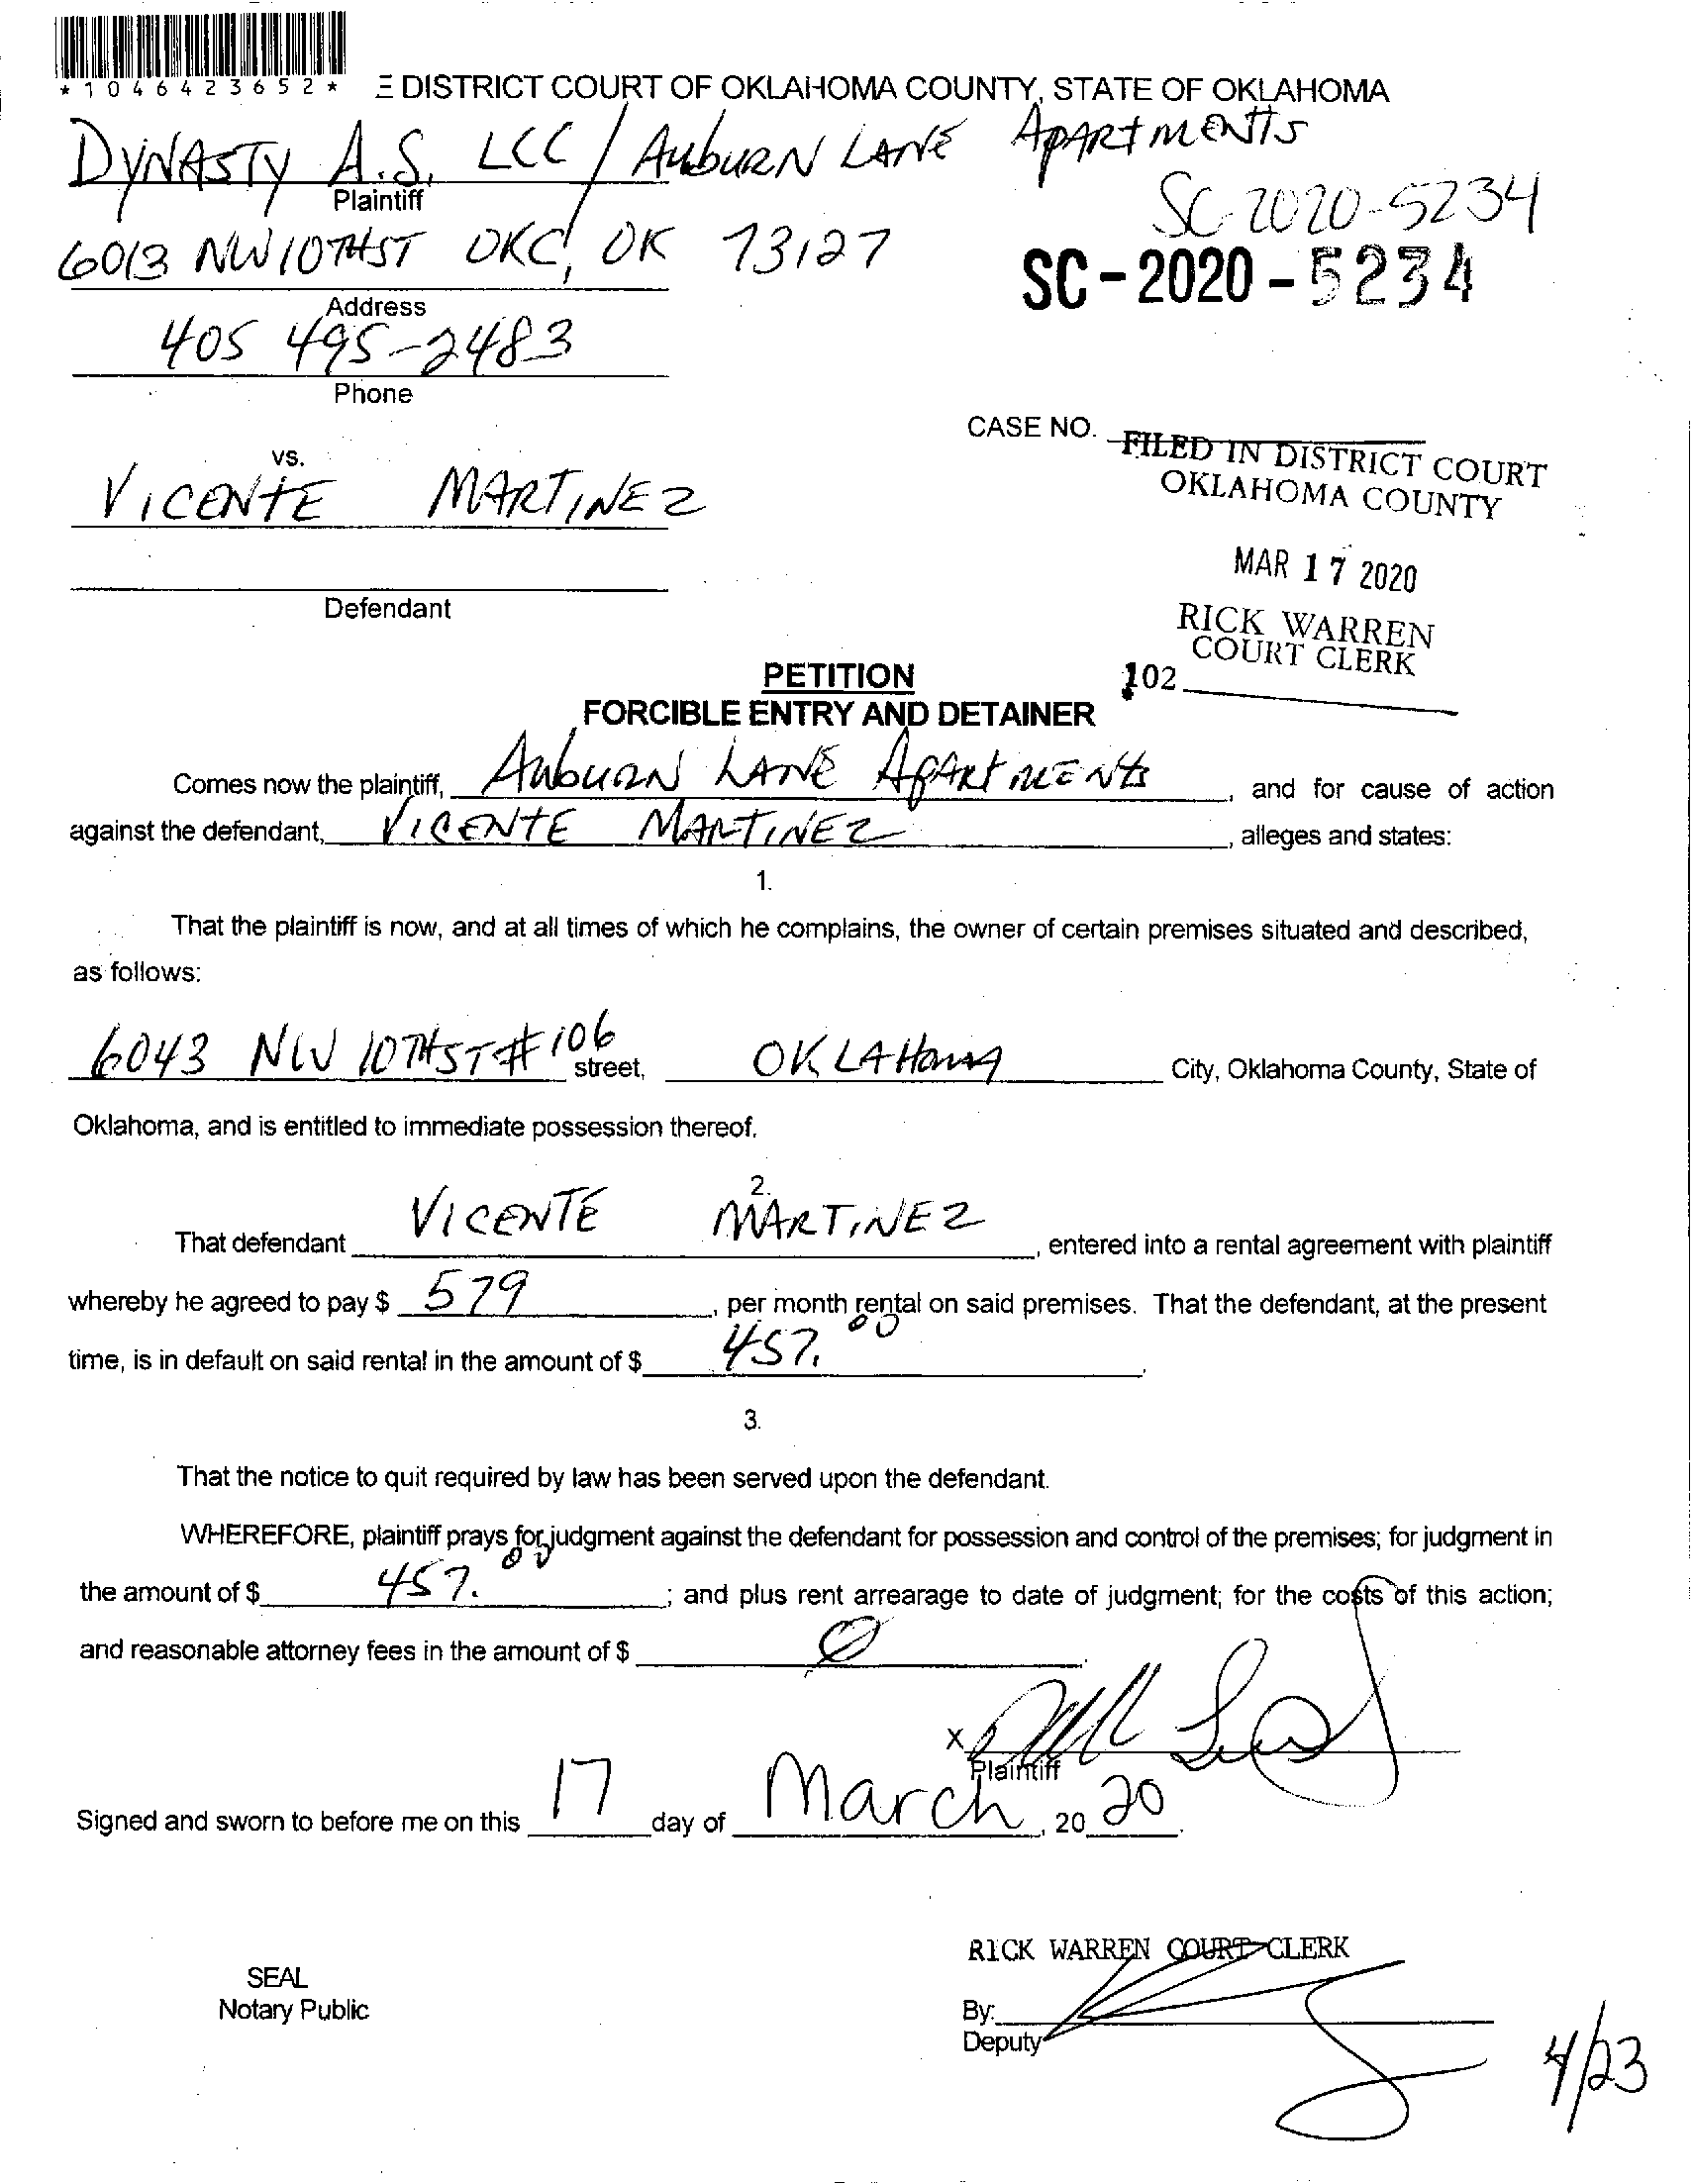 *1046423652*
E DISTRICT COURT OF OKLAHOMA COUNTY, STATE OF OKLAHOMA
DYNASTY A.S. LCC / AUBURN LANE APARTMENTS
Plaintiff
SC-2020-5234
6013 NW 10TH ST OKC, OK 73127
SC-2020-5234
Address
405 495-2483
Phone
CASE NO.
FILED IN DISTRICT COURT
OKLAHOMA COUNTY
vs.
VICENTE MARTINEZ
MAR 17 2020
Defendant
RICK WARREN
COURT CLERK
102
PETITION
FORCIBLE ENTRY AND DETAINER
Comes now the plaintiff, AUBURN LANE APARTMENTS, and for cause of action
against the defendant, VICENTE MARTINEZ, alleges and states:
1.
That the plaintiff is now, and at all times of which he complains, the owner of certain premises situated and described,
as follows:
6043 NW 10TH ST #106 street, OKLAHOMA City, Oklahoma County, State of
Oklahoma, and is entitled to immediate possession thereof.
2.
That defendant VICENTE MARTINEZ, entered into a rental agreement with plaintiff
whereby he agreed to pay $ 579, per month rental on said premises. That the defendant, at the present
time, is in default on said rental in the amount of $ 457.00.
3.
That the notice to quit required by law has been served upon the defendant.
WHEREFORE, plaintiff prays for judgment against the defendant for possession and control of the premises; for judgment in
the amount of $ 457.00; and plus rent arrearage to date of judgment; for the costs of this action;
and reasonable attorney fees in the amount of $ 0.
X
Plaintiff
Signed and sworn to before me on this 17 day of March, 20 20.
RICK WARREN COURT CLERK
SEAL
Notary Public
By:
Deputy
4/23